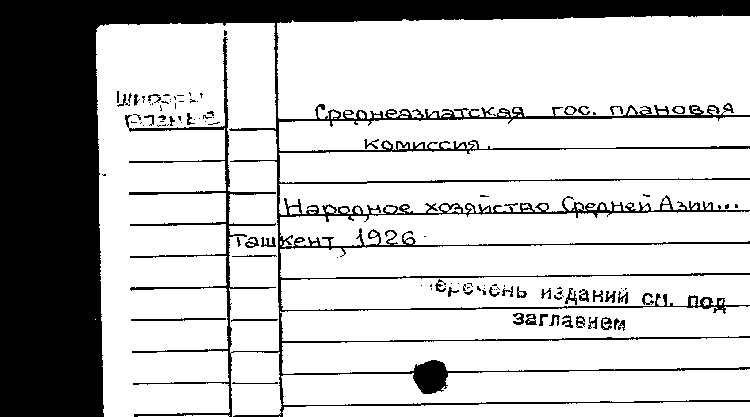 Шифры
разные
Среднеазиатская гос. плановая
комиссия.
Народное хозяйство Средней Азии...
Ташкент, 1926.
Перечень изданий см. под
заглавием